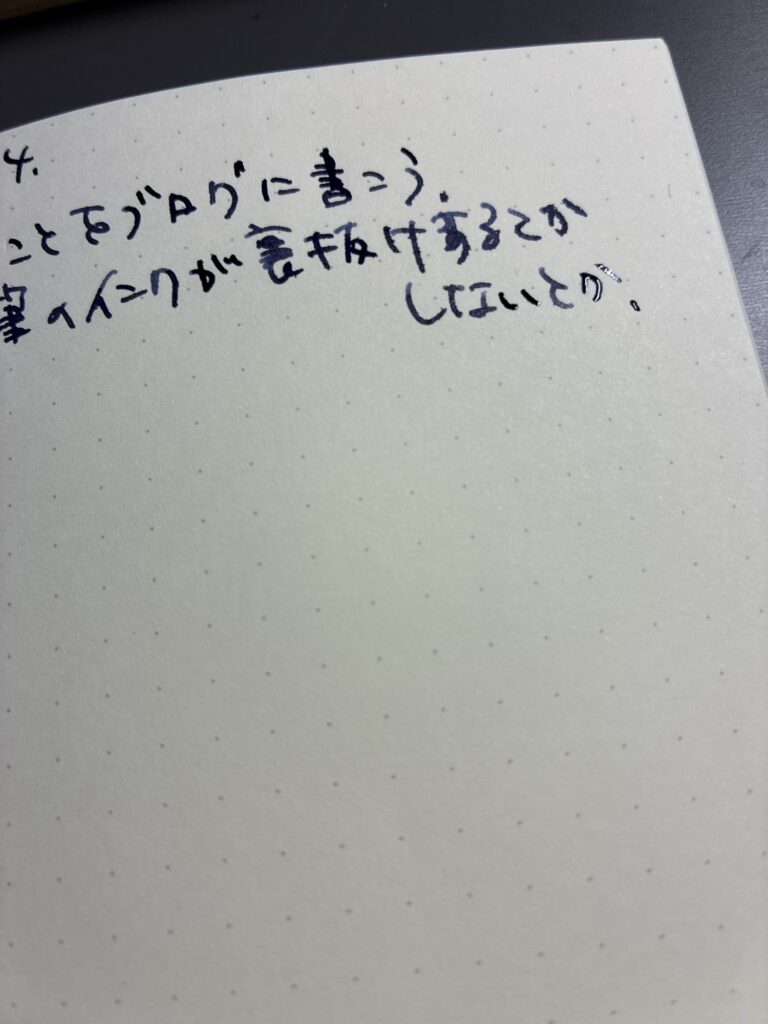 4.
ことをブログに書こう.
筆のインクが裏抜けするとか
しないとか.